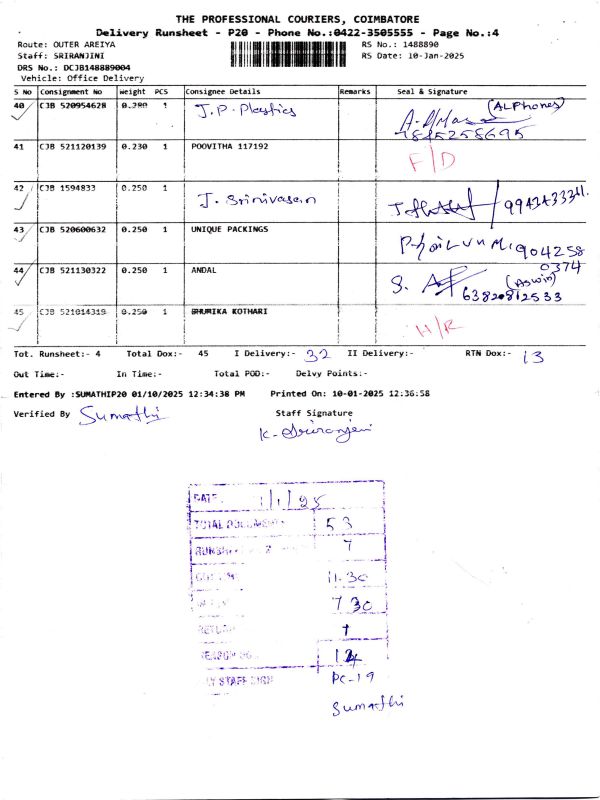 THE PROFESSIONAL COURIERS, COIMBATORE
Delivery Runsheet - P20 - Phone No.:0422-3505555 - Page No.:4
Route: OUTER AREIYA RS No.: 1488890
Staff: SRIRANJINI RS Date: 10-Jan-2025
DRS No.: DCJB148889004
Vehicle: Office Delivery
S No Consignment No Weight PCS Consignee Details Remarks Seal & Signature
40 CJB 520954628 0.200 1 J.P. Plastics (ALPhones)
9845258695
41 CJB 521120139 0.230 1 POOVITHA 117192 F/D
42 CJB 1594833 0.250 1 J. Srinivasan
43 CJB 520600632 0.250 1 UNIQUE PACKINGS 904258
0374
44 CJB 521130322 0.250 1 ANDAL S. (Aswin)
63820812533
45 CJB 521014319 0.250 1 BHUMIKA KOTHARI H/R
Tot. Runsheet:- 4 Total Dox:- 45 I Delivery:- 32 II Delivery:- RTN Dox:- 13
Out Time:- In Time:- Total POD:- Delvy Points:-
Entered By :SUMATHIP20 01/10/2025 12:34:38 PM Printed On: 10-01-2025 12:36:58
Verified By Sumathi Staff Signature
K. Sriranjeni
DATE 1/1/25
TOTAL DOCUMENTS 53
7
11.30
7 30
RETURN 1
REASON
STAFF SIGN PC-19
Sumathi